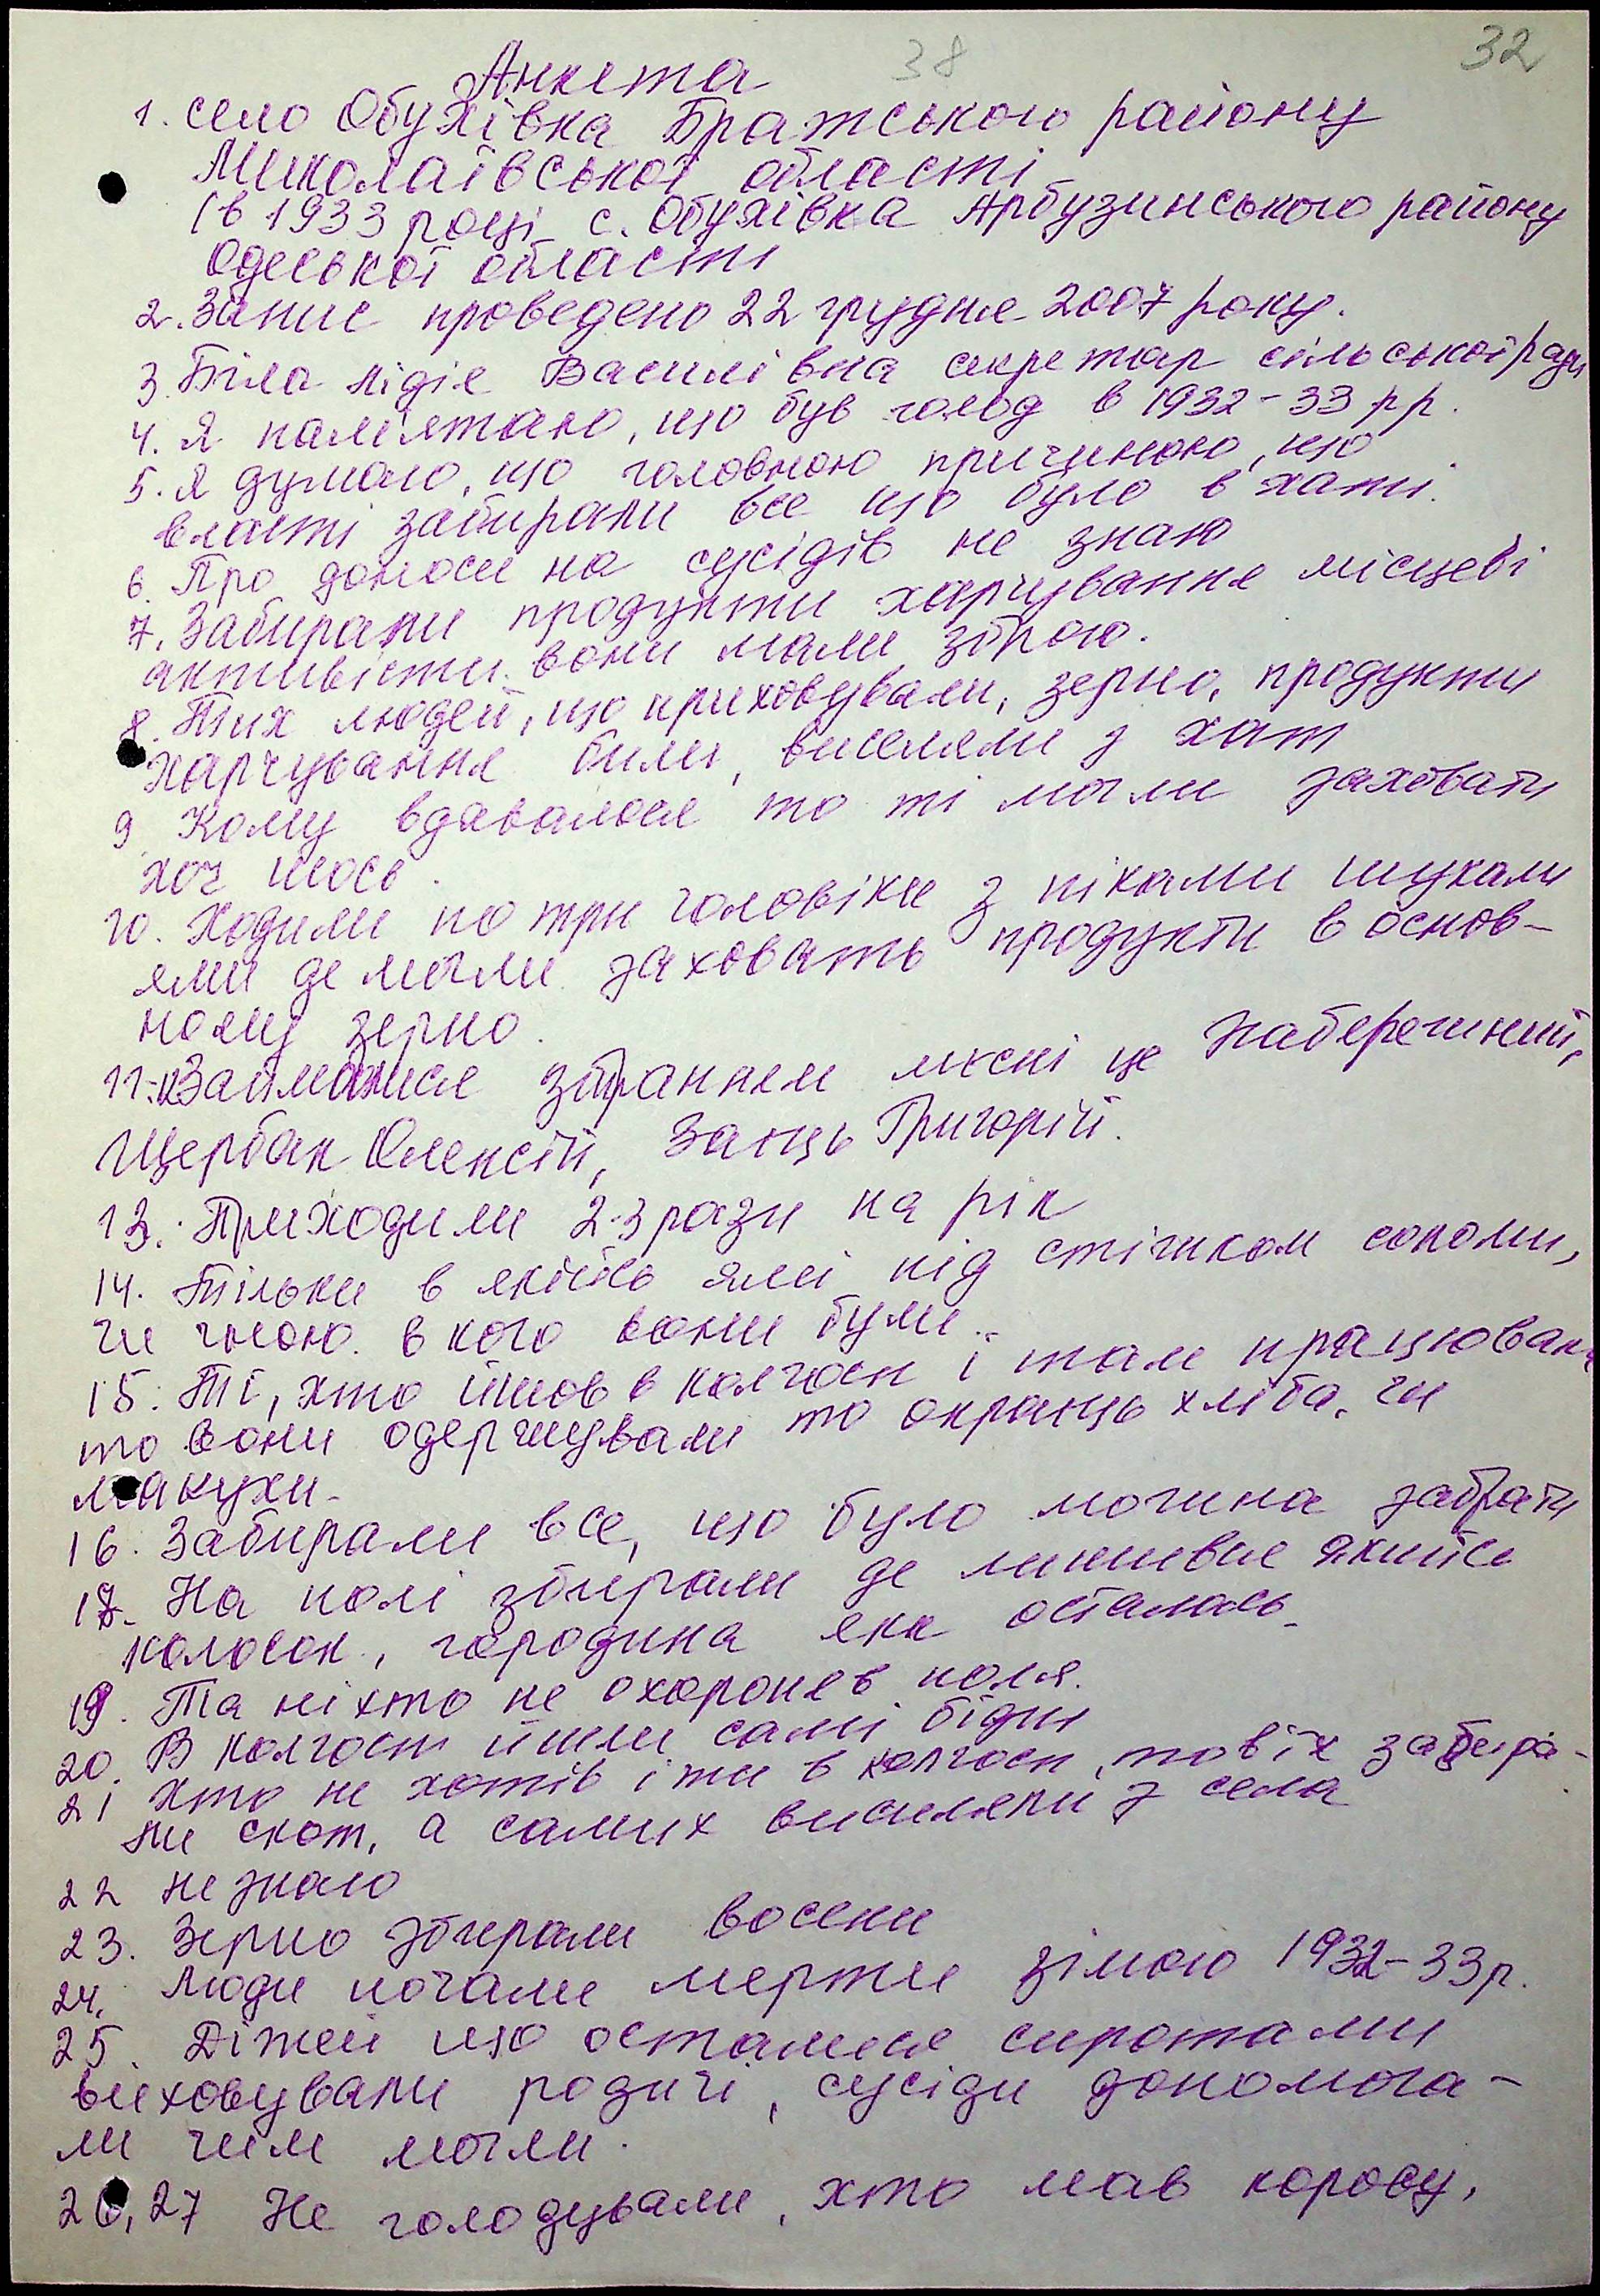 38
32
Анкета
1. село Обухівка Братського району
Миколаївської області
(в 1933 році с. Обухівка Арбузинського району
Одеської області
2. Запис проведено 22 грудня 2007 року.
3. Біла Лідія Василівна секретар сільської ради
4. Я памлятаю, що був голод в 1932-33 рр.
5. Я думаю, що головною причиною, що
власті забирали все що було в хаті.
6. Про доноси на сусідів не знаю
7. Забирали продукти харчування місцеві
активісти. вони мали зброю.
8. Тих людей, що приховували, зерно, продукти
харчування били, виселяли з хат
9 Кому вдавалося то ті могли заховати
хоч щось.
10. Ходили по три чоловіки з піками шукали
ями де могли заховать продукти в основ-
ному зерно.
11. Займалися збранням це Набережний,
Щербак Олексій, Заяць Григорій.
13. Приходили 2-3 рази на рік
14. Тільки в якійсь ямі під стіжком соломи,
чи гною. в кого вони були.
15. Ті, хто йшов в колгосп і там працювали
то вони одержували то окраєць хліба, чи
макухи.
16. Забирали все, що було можна забрати
18. На полі збирали де лишився якийсь
колосок, городина яка осталась.
19. Та ніхто не охороняв поля.
20. В колгосп йшли самі бідні
21 Хто не хотів іти в колгосп, то в їх забира-
ли скот, а самих висиляли з села
22 не знаю
23. Зерно збирали восени
24. Люди почали мерти зімою 1932-33р.
25. Дітей що осталися сиротами
виховували родичі, сусіди допомога-
ли чим могли.
26, 27 Не голодували, хто мав корову,